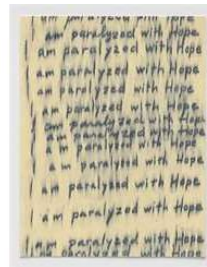 am paralyzed with Hope
am paralyzed with Hope
am paralyzed with Hope
am paralyzed with Hope
am paralyzed with Hope
am paralyzed with Hope
am paralyzed with Hope
am paralyzed with Hope
am paralyzed with Hope
am paralyzed with Hope
am paralyzed with Hope
I am paralyzed with Hope
I am paralyzed with Hope
am paralyzed with Hope